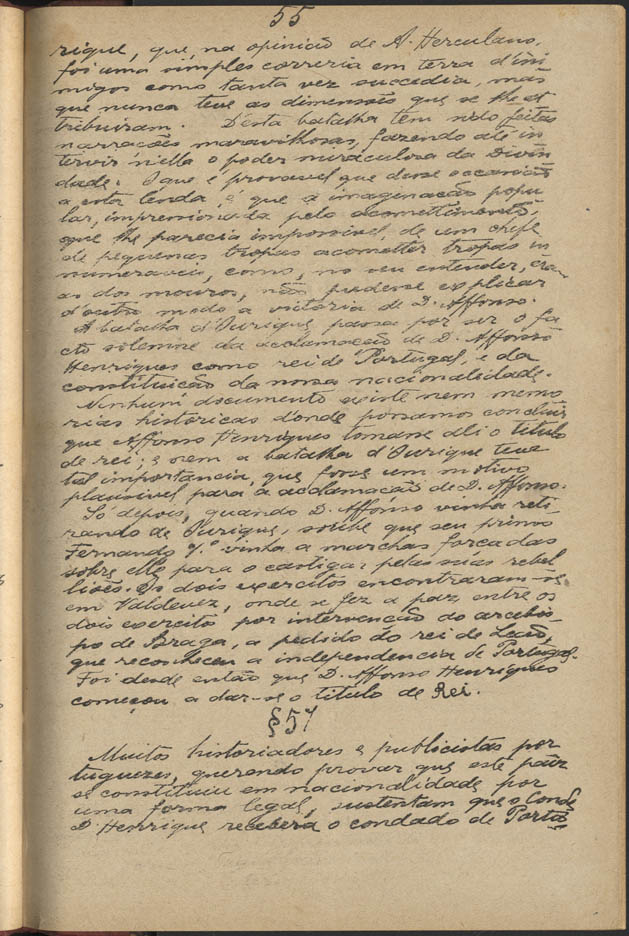 55
rique, que na opinião de A. Herculano,
foi uma simples correria em terra d'ini
migos como tanta vez succedia, mas
que nunca teve as dimensões que se lhe at
tribuiram. D'esta batalha tem sido feitas
narrações maravilhosas, fazendo até in
tervir n'ella o poder miraculoso da Divin
dade. O que é provavel que desse occasião
a esta lenda, é que a imaginação popu
lar, impressionada pelo acomettimento,
que lhe parecia impossivel, de um chefe
de pequenas tropas acometter tropas in
numeraveis, como, no seu entender, eram
as dos mouros, não pudesse explicar
d'outro modo a victoria de D. Affonso.
A batalha d'Ourique passa por ser o fa
cto solemne da acclamação de D. Affonso
Henriques como rei de Portugal, e da
constituição da nossa nacionalidade.
Nenhum documento existe nem memo
rias historicas d'onde possamos concluir
que Affonso Henriques tomasse alli o titulo
de rei; e nem a batalha d'Ourique teve
tal importancia, que fosse um motivo
plausivel para a acclamação de D. Affonso.
Só depois, quando D. Affonso vinha reti-
rando de Ourique, soube que seu primo
Fernando vinha a marchas forçadas
sobre elle para o castigar pelas suas rebel
liões. Os dois exercitos encontraram-se
em Valdevez, onde se fez a paz entre os
dois exercitos por intervenção do arcebis-
po de Braga, a pedido do rei de Leão,
que reconheceu a independencia de Portugal.
Foi desde então que D. Affonso Henriques
começou a dar-se o titulo de Rei.
§ 57
Muitos historiadores e publicistas por
tuguezes, querendo provar que este paiz
se constituiu em nacionalidade por
uma forma legal, sustentam que o Conde
D. Henrique recebera o condado de Portu